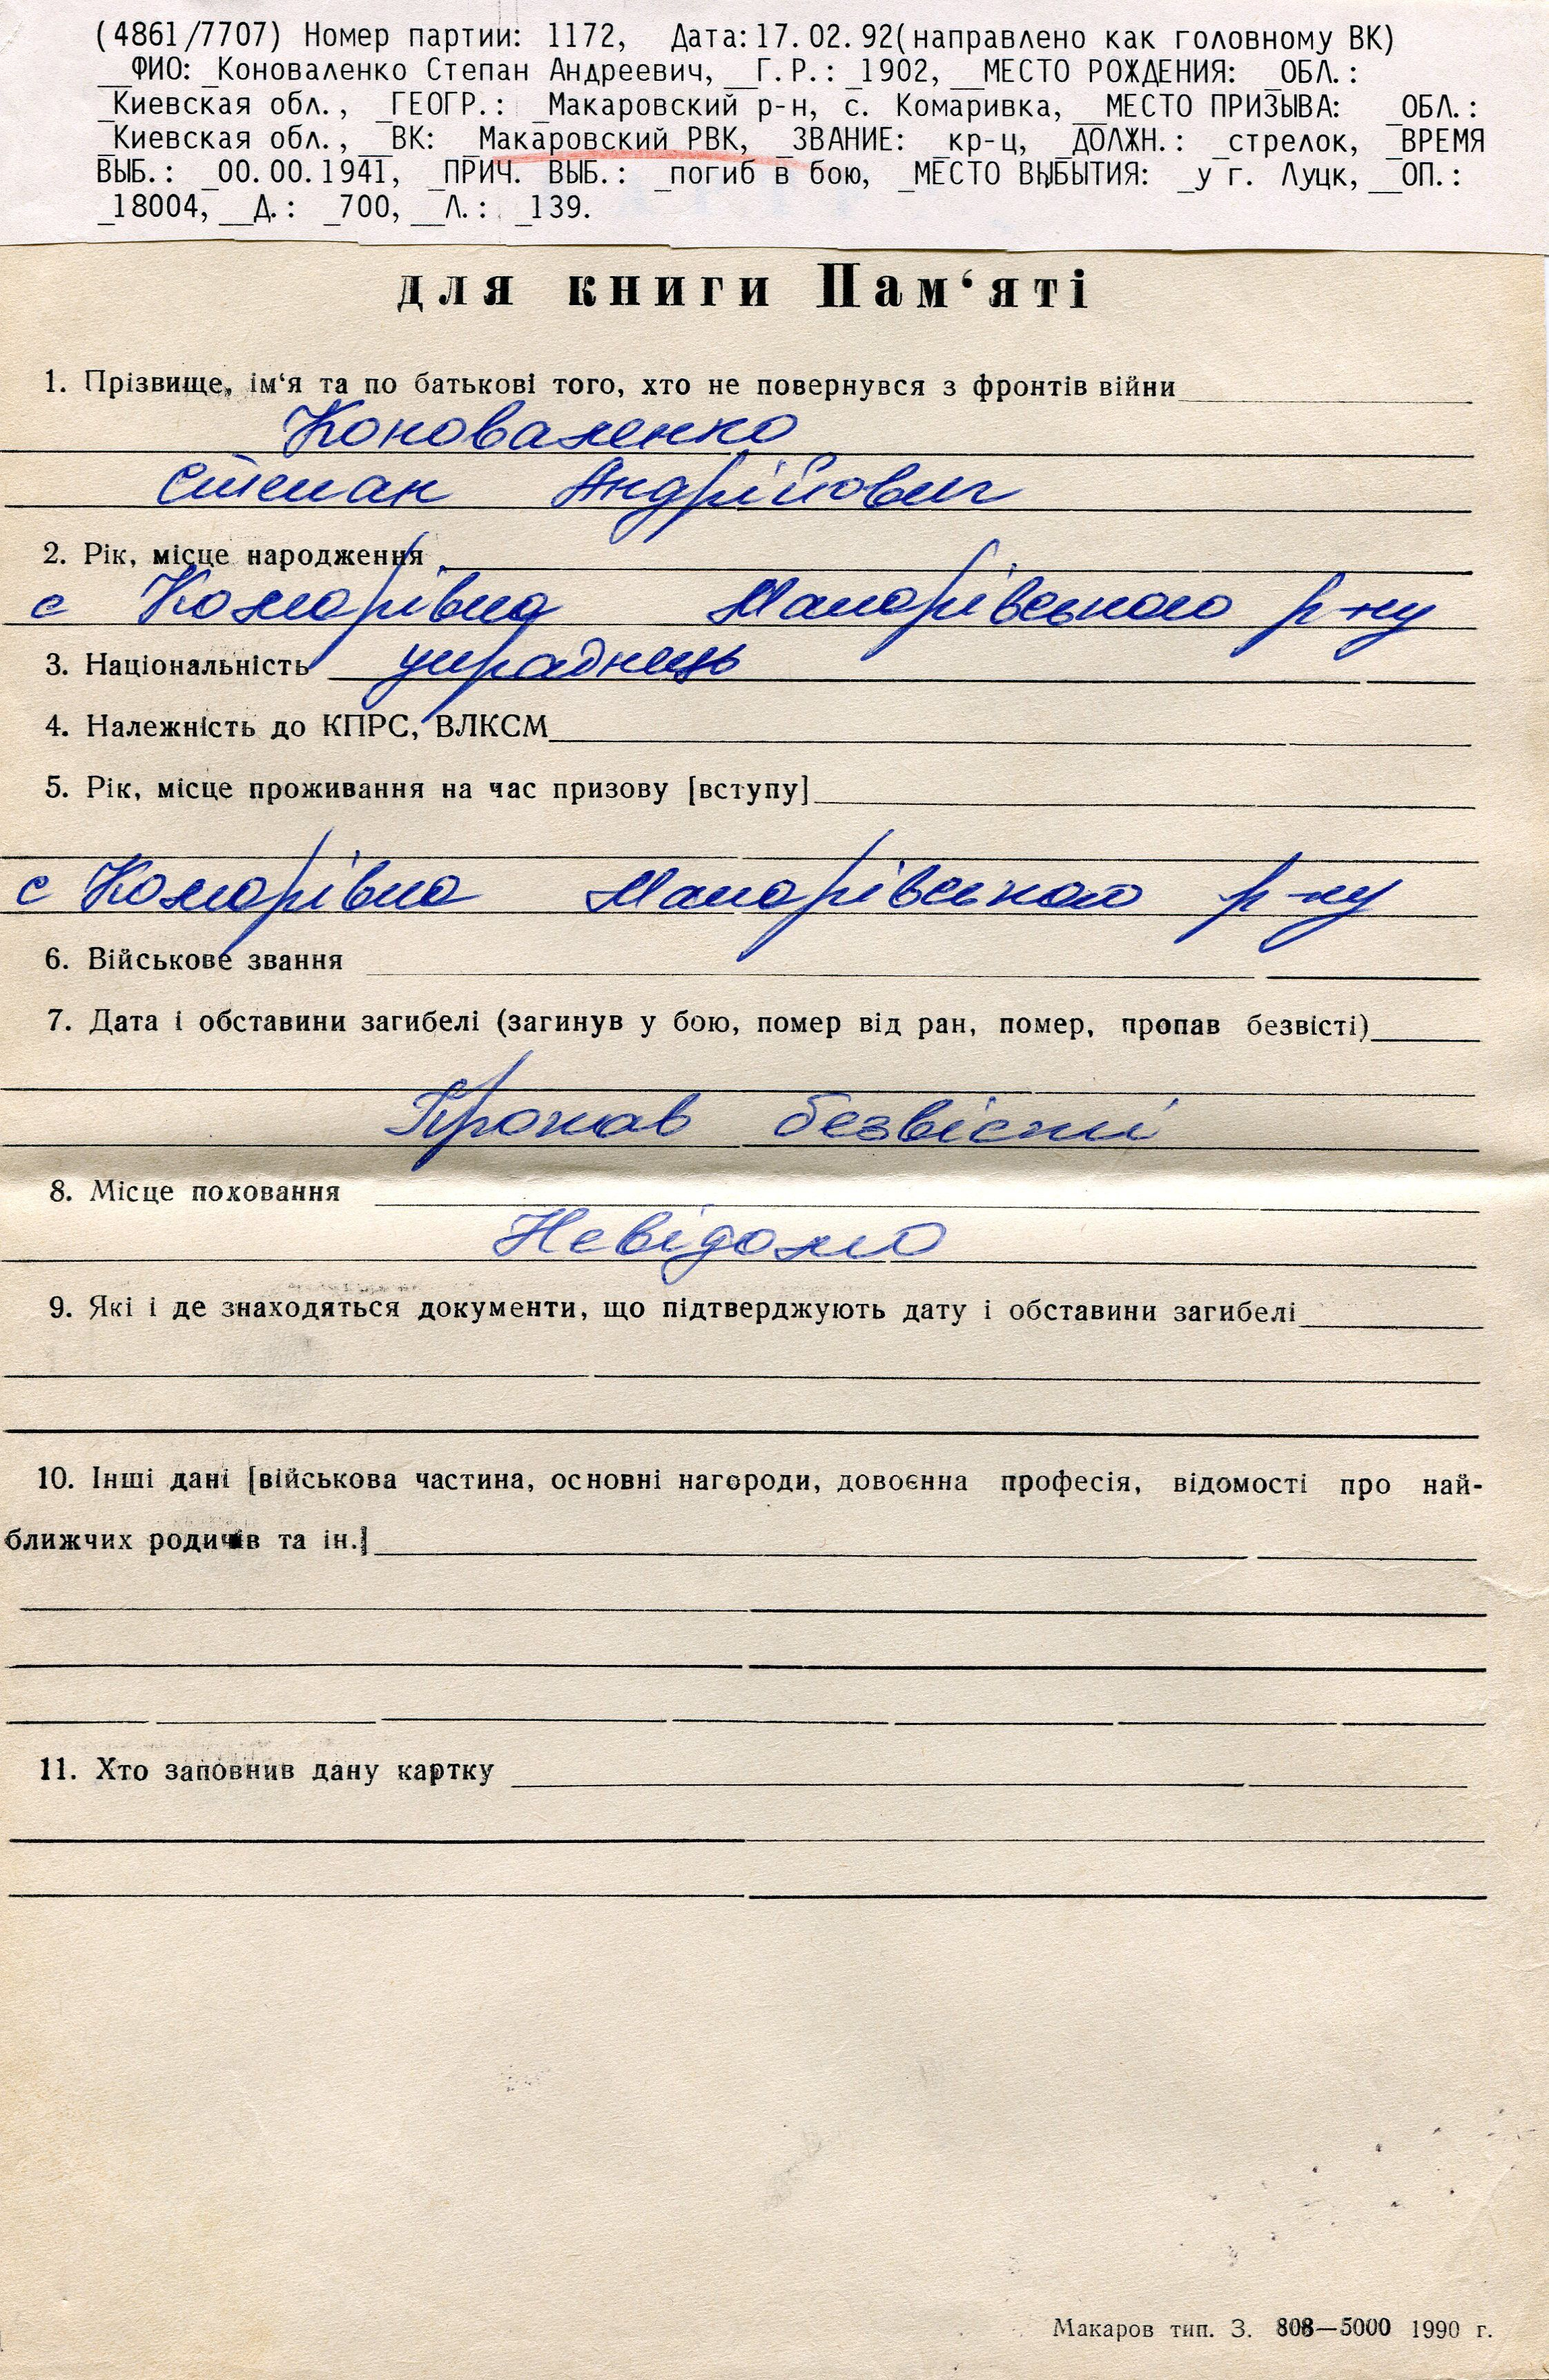 (4861/7707) Номер партии: 1172, Дата:17.02.92(направлено как головному ВК)
__ФИО: _Коноваленко Степан Андреевич, __Г.Р.: _1902, __МЕСТО РОЖДЕНИЯ: _ОБЛ.:
_Киевская обл., _ГЕОГР.: _Макаровский р-н, с. Комаривка, __МЕСТО ПРИЗЫВА: _ОБЛ.:
_Киевская обл., __ВК: _Макаровский РВК, _ЗВАНИЕ: _кр-ц, _ДОЛЖН.: _стрелок, _ВРЕМЯ
ВЫБ.: _00.00.1941, _ПРИЧ. ВЫБ.: _погиб в бою, _МЕСТО ВЫБЫТИЯ: _у г. Луцк, __ОП.:
_18004, __Д.: _700, __Л.: _139.
для книги Пам‘яті
1. Прізвище, ім‘я та по батькові того, хто не повернувся з фронтів війни
Коноваленко
Степан Андрійович
2. Рік, місце народження
с Комарівка Макарівського р-ну
3. Національність украднець
4. Належність до КПРС, ВЛКСМ
5. Рік, місце проживання на час призову [вступу]
с Комарівка Макарівського р-ну
6. Військове звання
7. Дата і обставини загибелі (загинув у бою, помер від ран, помер, пропав безвісті)
Пропав безвісті
8. Місце поховання
Невідомо
9. Які і де знаходяться документи, що підтверджують дату і обставини загибелі
10. Інші дані [військова частина, основні нагороди, довоєнна професія, відомості про най-
ближчих родичів та ін.]
11. Хто заповнив дану картку
Макаров тип. З. 808—5000 1990 г.